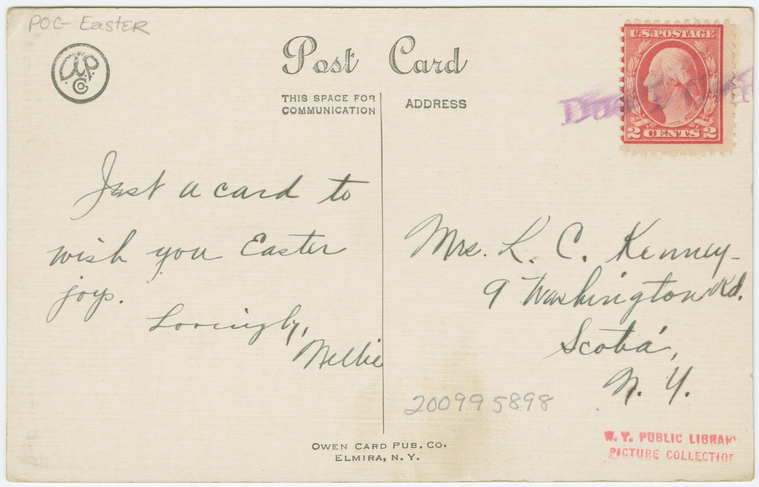 POC- Easter
Post Card
THIS SPACE FOR
COMMUNICATION
ADDRESS
U.S. POSTAGE
2 CENTS 2
Just a card to
wish you Easter
joys.
Lovingly,
Nellie
Mrs. L. C. Kenney
9 Washington Rd.
Scotia,
N. Y.
200995898
OWEN CARD PUB. CO.
ELMIRA, N. Y.
PUBLIC LIBRARY
PICTURE COLLECTION